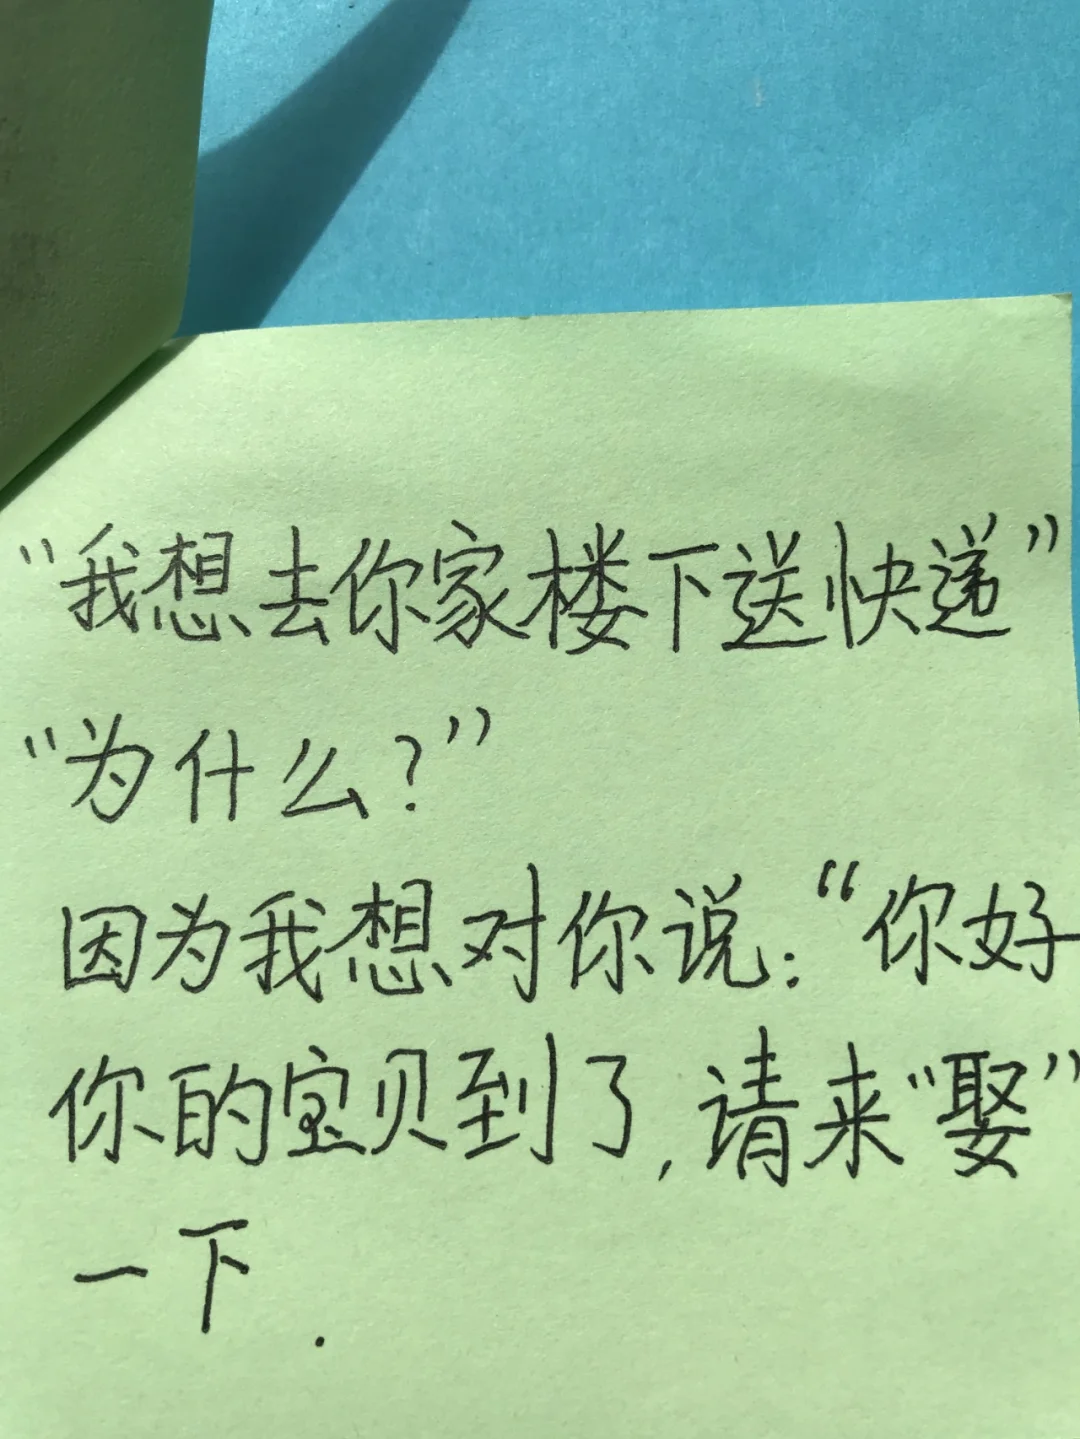 “我想去你家楼下送快递”
“为什么？”
因为我想对你说：“你好
你的宝贝到了，请来“娶”
一下.